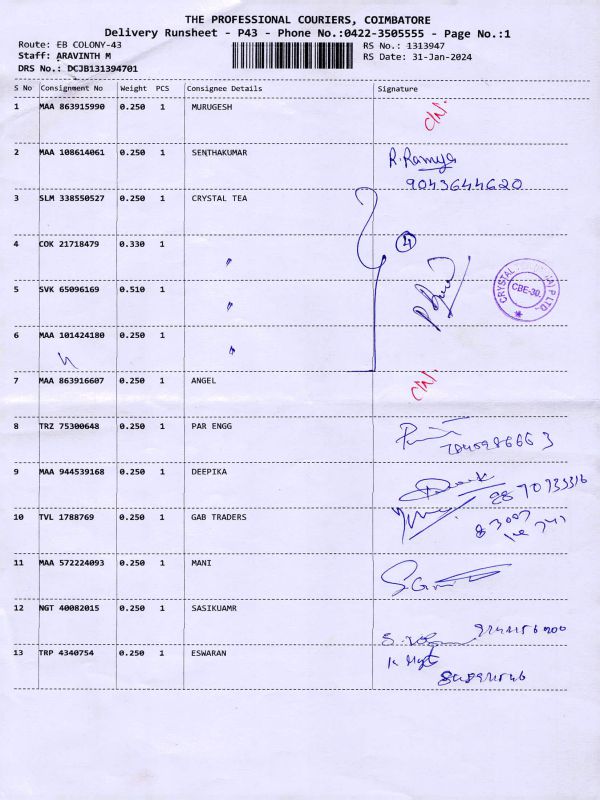 THE PROFESSIONAL COURIERS, COIMBATORE
Delivery Runsheet - P43 - Phone No.:0422-3505555 - Page No.:1
Route: EB COLONY-43 RS No.: 1313947
Staff: ARAVINTH M RS Date: 31-Jan-2024
DRS No.: DCJB131394701
S No Consignment No Weight PCS Consignee Details Signature
1 MAA 863915990 0.250 1 MURUGESH
2 MAA 108614061 0.250 1 SENTHAKUMAR R. Ramya
9043644620
3 SLM 338550527 0.250 1 CRYSTAL TEA
4 COK 21718479 0.330 1 〃 4
5 SVK 65096169 0.510 1 〃 CRYSTAL P LTD CBE-30.
6 MAA 101424180 0.250 1 〃
7 MAA 863916607 0.250 1 ANGEL
8 TRZ 75300648 0.250 1 PAR ENGG
9 MAA 944539168 0.250 1 DEEPIKA
10 TVL 1788769 0.250 1 GAB TRADERS
11 MAA 572224093 0.250 1 MANI
12 NGT 40082015 0.250 1 SASIKUAMR
13 TRP 4340754 0.250 1 ESWARAN